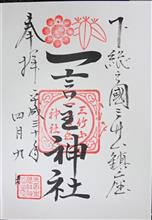 下総之國三竹山鎮座
一言主神社
奉拝
平成三十年
四月九日